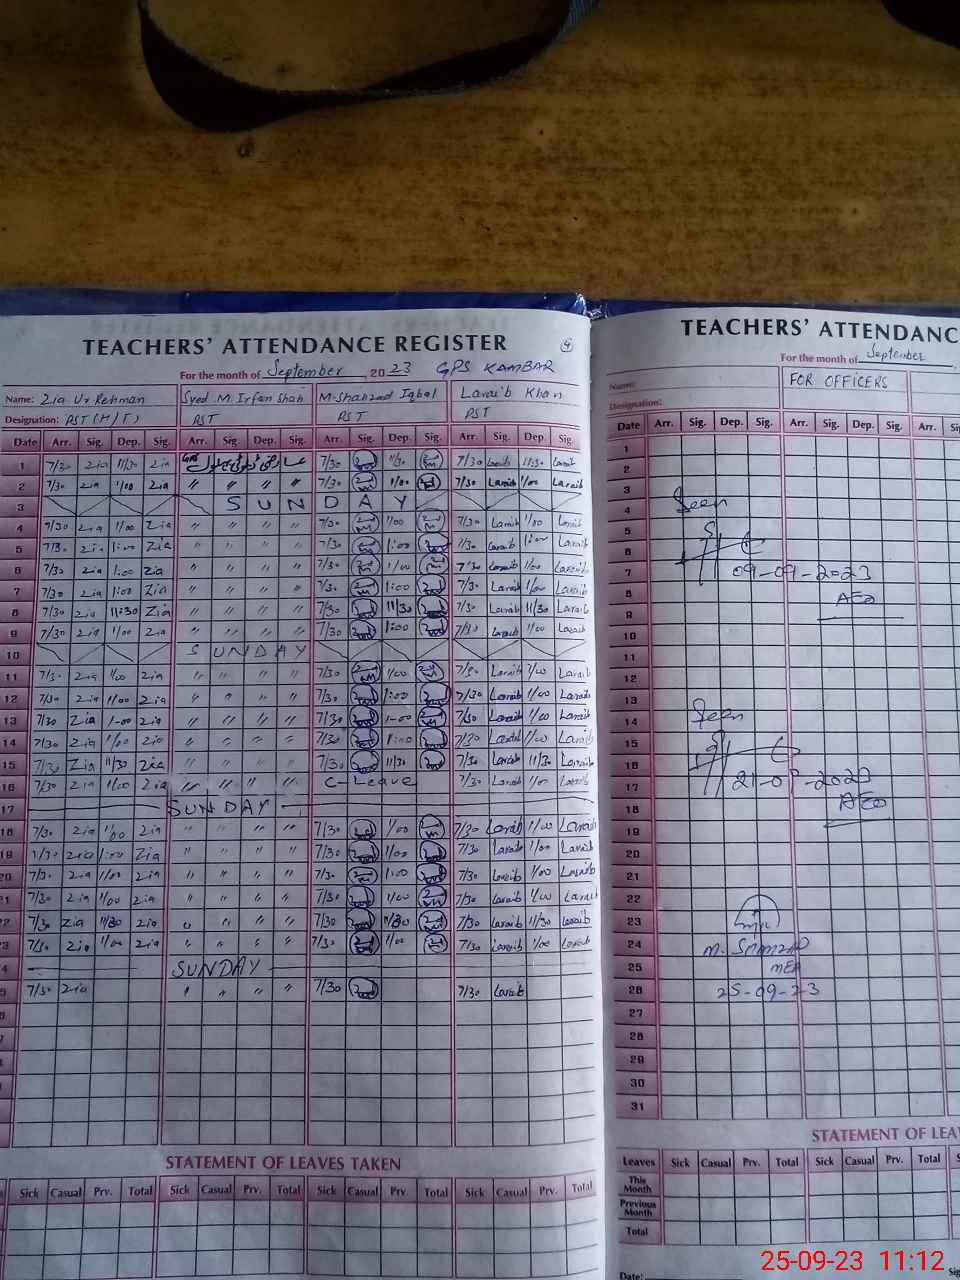 TEACHERS' ATTENDANCE REGISTER
For the month of September, 2023 GPS KAMBAR
Name: Zia Ur Rehman Syed M. Irfan Shah M. Shahzad Iqbal Laraib Khan
Designation: PST (H/T) PST PST PST
Date Arr. Sig. Dep. Sig. Arr. Sig. Dep. Sig. Arr. Sig. Dep. Sig. Arr. Sig. Dep. Sig.
1 7/30 Zia 11/30 Zia 7/30 11/30 7/30 Laraib 11:30 Laraib
2 7/30 Zia 1/00 Zia " " " " 7/30 1/00 7/30 Laraib 1/00 Laraib
3 SUNDAY
4 7/30 Zia 1/00 Zia " " " " 7/30 1/00 7/30 Laraib 1/00 Laraib
5 7/30 Zia 1:00 Zia " " " " 7/30 1:00 7/30 Laraib 1:00 Laraib
6 7/30 Zia 1:00 Zia " " " " 7/30 1/00 7/30 Laraib 1/00 Laraib
7 7/30 Zia 1:00 Zia " " " " 7/30 1:00 7/30 Laraib 1/00 Laraib
8 7/30 Zia 11:30 Zia " " " " 7/30 11/30 7/30 Laraib 11/30 Laraib
9 7/30 Zia 1/00 Zia " " " " 7/30 1:00 7/30 Laraib 1/00 Laraib
10 SUNDAY
11 7/30 Zia 1/00 Zia " " " " 7/30 1/00 7/30 Laraib 1/00 Laraib
12 7/30 Zia 1/00 Zia " " " " 7/30 1:00 7/30 Laraib 1/00 Laraib
13 7/30 Zia 1-00 Zia " " " " 7/30 1-00 7/30 Laraib 1/00 Laraib
14 7/30 Zia 1/00 Zia " " " " 7/30 1:00 7/30 Laraib 1/00 Laraib
15 7/30 Zia 11/30 Zia " " " " 7/30 11/30 7/30 Laraib 11/30 Laraib
16 7/30 Zia 1/00 Zia " " " " C-Leave 7/30 Laraib 1/00 Laraib
17 SUNDAY
18 7/30 Zia 1/00 Zia " " " " 7/30 1/00 7/30 Laraib 1/00 Laraib
19 7/30 Zia 1:00 Zia " " " " 7/30 1/00 7/30 Laraib 1/00 Laraib
20 7/30 Zia 1/00 Zia " " " " 7/30 1:00 7/30 Laraib 1/00 Laraib
21 7/30 Zia 1/00 Zia " " " " 7/30 1/00 7/30 Laraib 1/00 Laraib
22 7/30 Zia 11/30 Zia " " " " 7/30 11/30 7/30 Laraib 11/30 Laraib
23 7/30 Zia 1/00 Zia " " " " 7/30 1/00 7/30 Laraib 1/00 Laraib
SUNDAY
7/30 Zia " " " " 7/30 7/30 Laraib
STATEMENT OF LEAVES TAKEN
Sick Casual Prv. Total Sick Casual Prv. Total Sick Casual Prv. Total Sick Casual Prv. Total
TEACHERS' ATTENDANC
For the month of September
Name: FOR OFFICERS
Designation:
Date Arr. Sig. Dep. Sig. Arr. Sig. Dep. Sig. Arr.
1
2
3
4 Seen
5
6
7 09-09-2023
8 AEO
9
10
11
12
13
14 Seen
15
16
17 21-09-2023
18 AEO
19
20
21
22
23
24 M. Shahzad
25 MEA
26 25-09-23
27
28
29
30
31
STATEMENT OF LEA
Leaves Sick Casual Prv. Total Sick Casual Prv. Total
This Month
Previous Month
Total
Date: Sig
25-09-23 11:12